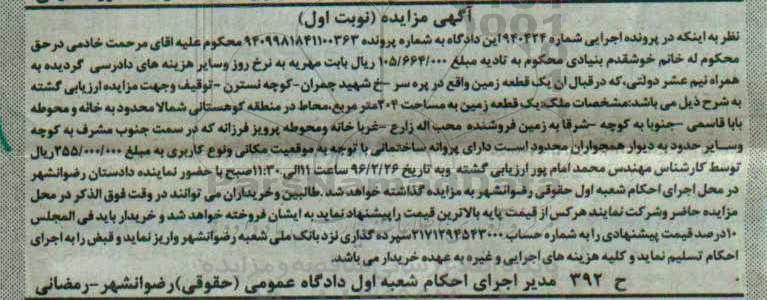 آگهی مزایده (نوبت اول)
نظر به اینکه در پرونده اجرایی شماره ۹۴۰۴۲۴ این دادگاه به شماره پرونده ۹۴۰۹۹۸۱۸۴۱۱۰۰۳۶۳ محکوم علیه اقای مرحمت خادمی درحق
محکوم له خانم خوشقدم بنیادی محکوم به تادیه مبلغ ۱۰۵/۶۶۴/۰۰۰ ریال بابت مهریه به نرخ روز وسایر هزینه های دادرسی گردیده به
همراه نیم عشر دولتی، که در قبال ان یک قطعه زمین واقع در پره سر -خ شهید چمران-کوچه نسترن -توقیف وجهت مزایده ارزیابی گشته
به شرح ذیل می باشد:مشخصات ملک:یک قطعه زمین به مساحت ۲۰۴متر مربع،محاط در منطقه کوهستانی شمالا محدود به خانه و محوطه
بابا قاسمی -جنوبا به کوچه -شرقا به زمین فروشنده محب اله زارع -غربا خانه ومحوطه پرویز فرزانه که در سمت جنوب مشرف به کوچه
وسایر حدود به دیوار همجواران محدود است دارای پروانه ساختمانی با توجه به موقعیت مکانی ونوع کاربری به مبلغ ۲۵۵/۰۰۰/۰۰۰ریال
توسط کارشناس مهندس محمد امام پور ارزیابی گشته .وبه تاریخ ۹۶/۲/۲۶ ساعت ۱۱الی۱۱:۳۰صبح با حضور نماینده دادستان رضوانشهر
در محل اجرای احکام شعبه اول حقوقی رضوانشهر به مزایده گذاشته خواهد شد.طالبین وخریداران می توانند در وقت فوق الذکر در محل
مزایده حاضر وشرکت نمایند هرکس از قیمت پایه بالاترین قیمت را پیشنهاد نماید به ایشان فروخته خواهد شد و خریدار باید فی المجلس
۱۰درصد قیمت پیشنهادی را به شماره حساب ۲۱۷۱۲۹۴۵۴۳۰۰۰سپرده گذاری نزد بانک ملی شعبه رضوانشهر واریز نماید و قبض را به اجرای
احکام تسلیم نماید و کلیه هزینه های اجرایی و غیره به عهده خریدار می باشد.
ح ۳۹۲ مدیر اجرای احکام شعبه اول دادگاه عمومی (حقوقی) رضوانشهر-رمضانی